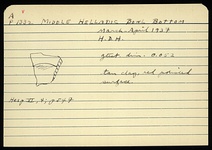 A
P 1332 MIDDLE HELLADIC BOWL BOTTOM
March-April 1937
H.D.H.
gtest dim: 0.052
tan clay, red painted
surface